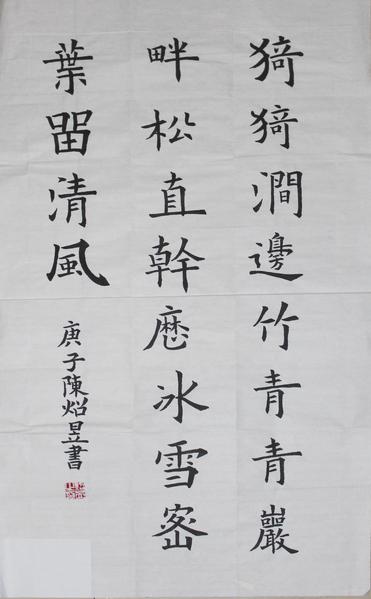 猗猗澗邊竹青青巖
畔松直幹歷冰雪密
葉留清風
庚子陳炤昱書